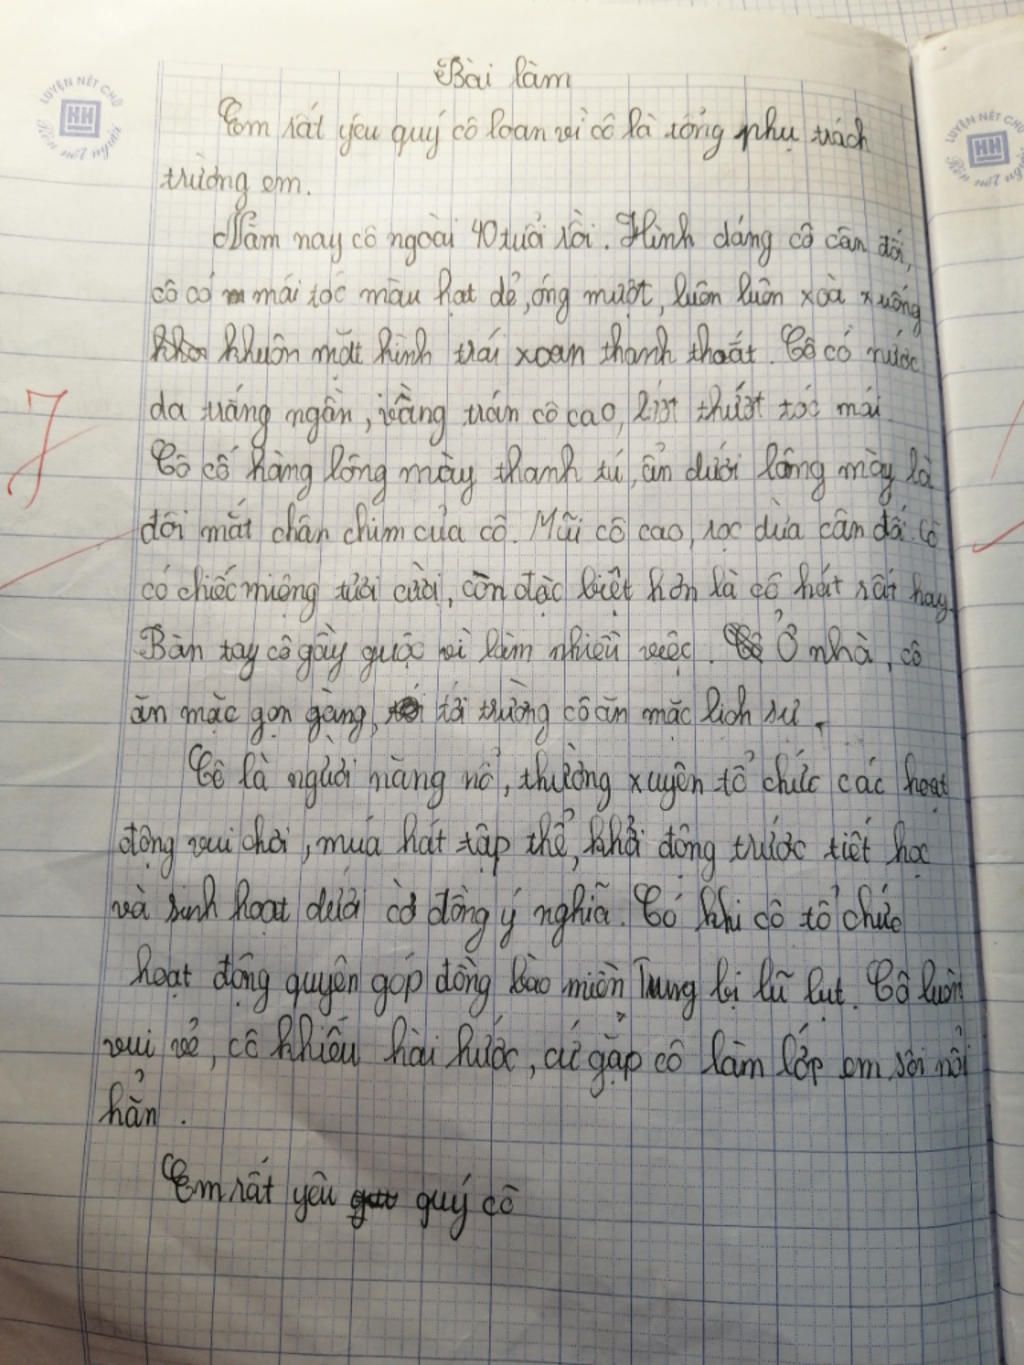 LUYỆN NÉT CHỮ
HH
Rèn nết người
LUYỆN NÉT CHỮ
HH
Rèn nết người
7
Bài làm
Em rất yêu quý cô Loan vì cô là tổng phụ trách
trường em.
Năm nay cô ngoài 40 tuổi rồi. Hình dáng cô cân đối,
cô có mái tóc màu hạt dẻ, óng mượt, luôn luôn xoà xuống
khuôn mặt hình trái xoan thanh thoát. Cô có nước
da trắng ngần, vầng trán cô cao, lướt thướt tóc mái
Cô có hàng lông mày thanh tú, ẩn dưới lông mày là
đôi mắt chân chim của cô. Mũi cô cao, sọc dừa cân đối. Cô
có chiếc miệng tươi cười, còn đặc biệt hơn là cô hát rất hay.
Bàn tay cô gầy guộc vì làm nhiều việc. Ở nhà, cô
ăn mặc gọn gàng, tới trường cô ăn mặc lịch sự.
Cô là người năng nổ, thường xuyên tổ chức các hoạt
động vui chơi, múa hát tập thể, khởi động trước tiết học
và sinh hoạt dưới cờ đồng ý nghĩa. Có khi cô tổ chức
hoạt động quyên góp đồng bào miền Trung bị lũ lụt. Cô luôn
vui vẻ, có khiếu hài hước, cứ gặp cô làm lớp em sôi nổi
hẳn.
Em rất yêu quý cô